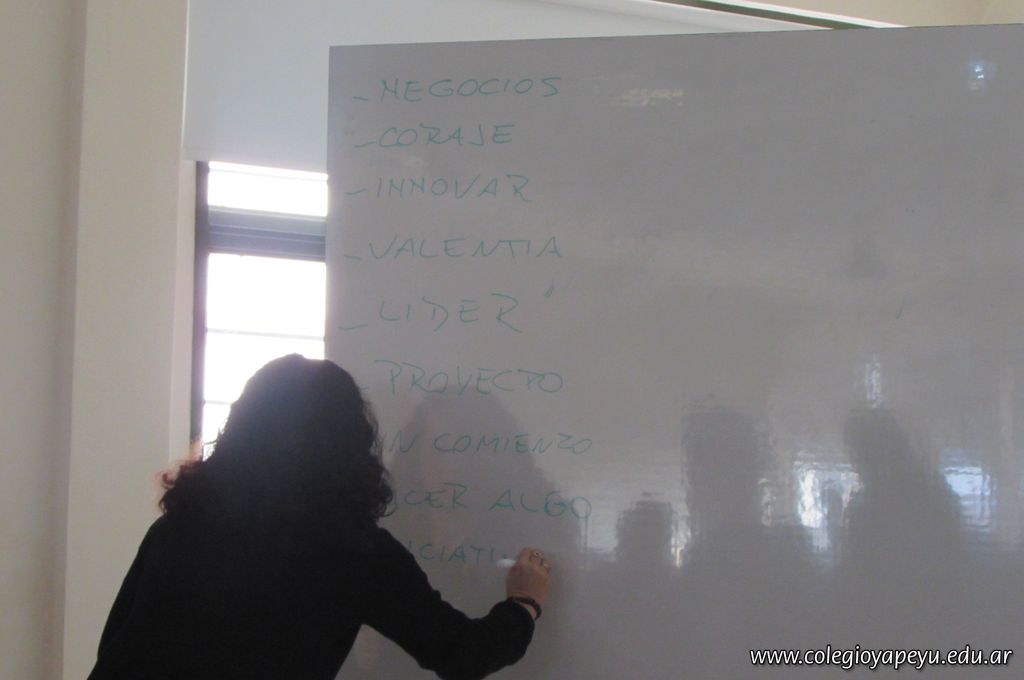 - NEGOCIOS
- CORAJE
- INNOVAR
- VALENTIA
- LIDER
- PROYECTO
N COMIENZO
CER ALGO
CIATI
www.colegioyapeyu.edu.ar